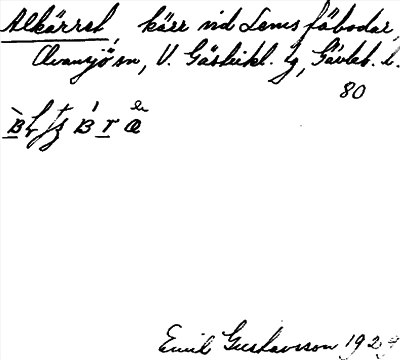 Alkärret, kärr vid Lenes fäbodar,
Ovansjö sn, V. Gästrikl. tg, Gävleb. l.
80
Emil Gustavsson 192